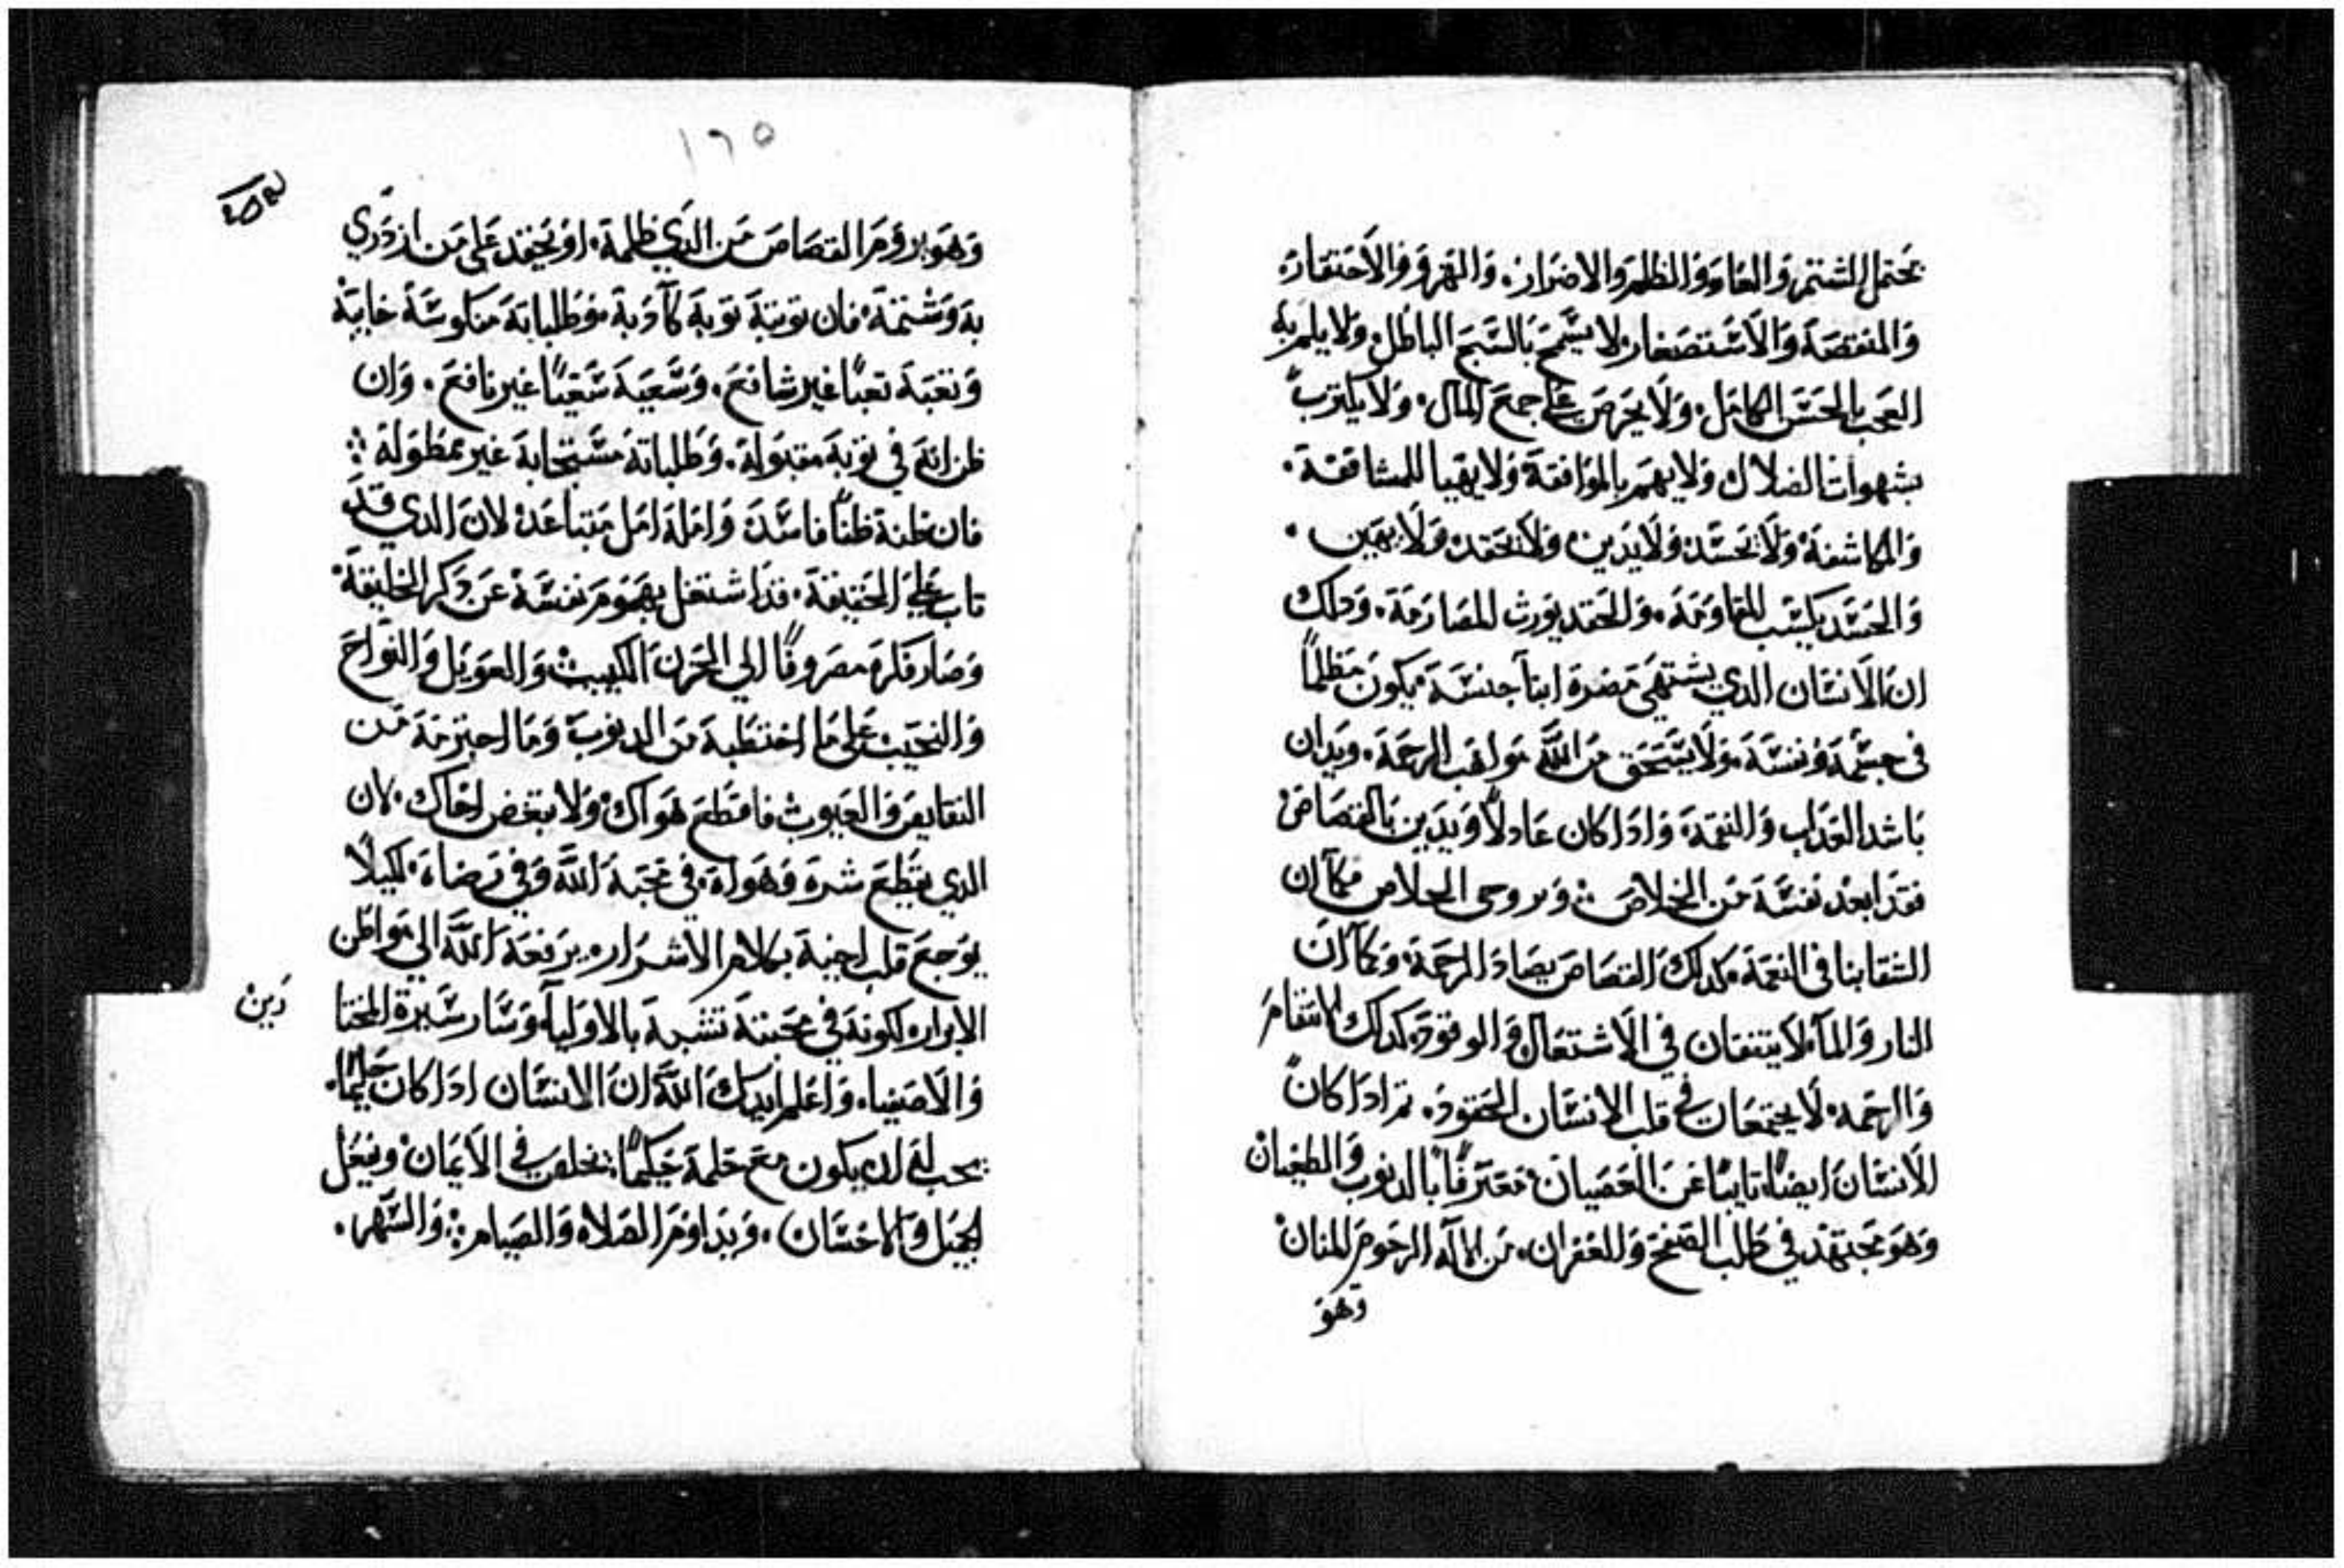 يحتمل الشتم والعار والظلم والاضرار. والهزو والاحتقار.
والمنقصة والاستصغار لا يسمح بالسبح الباطل ولا يلم به
العجب بالحسن الكامل. ولا يحرص على جمع المال. ولا يلترب
بشهوات الضلال ولا يهم بالموافقة ولا يهيا للمشاققة.
والمكاشفة ولا يحسد ولا يدين ولا يحقد ولا يهين.
والحسد يكسب المقاومة. والحقد يورث المصارمة. ودلك
ان الانسان الدي يشتهي مضرة ابنآ جنسة يكون مظلماً
في جسمة ونفسة. ولا يستحق من الله مواهب الرحمة. ويدان
باشد العداب والنقمة. وادا كان عادلاً ويدين بالقصاص
فقد ابعد نفسة من الخلاص: وروحى الخلاص فكما ان
الشقا بنافى النعمة. كدلك القصاص يضاد الرحمة. وكما ان
النار والمآ لا يتفقان في الاشتعال والوقود. كدلك الانتقام
والرحمه لا يجتمعان في قلب الانسان الحقود. تم ادا كان
الانسان ايضاً تايباً عن العصيان معترفاً بالدنوب والطغيان
وهو مجتهد في طلب الصفح والغفران. من الاله الرحوم المنان
وهو
١٦٥
وهو يروم القصاص من الدي ظلمة. او يحقد على من ازدري
بة وشتمة. فان توبتة توبة كآدبة وطلباتة منكوسة خايبة
وتعبة تعباً غير شافع. وسعية سعياً غير نافع. وان
ظن انة في توبة مقبولة. وطلباتة مستجابة غير ممطولة:
فان ظنة ظناً فاسد. واملة امل متباعد لان الدي قد
تاب على الحقيقة. قد اشتغل بهموم نفسة عن دكر الخليقة.
وصار فكرة مصروفاً الي الحزن الكييب والعويل والنواح
والنحيب على ما اختطبة من الدنوب وما احترمة من
النقايص والعيوب فاقطع هواك ولا تبغض اخاك. لان
الدي يقطع شرة وهواة. في محبة الله وفي رضاة. لكيلا
يوجع قلب اخية بكلام الاشرار. يرفعة الله الي مواطن
الابرار. لكونة في محبتة تشبة بالاوليآ وسار سيرة المختا
رين
والاصفياء. واعلم ايدك الله ان الانسان ادا كان حليماً.
يجب لة ان يكون مع حلمة حكيماً: يخلص في الايمان ويفعل
الجميل والاحسان. ويداوم الصلاه والصيام: والسهر.